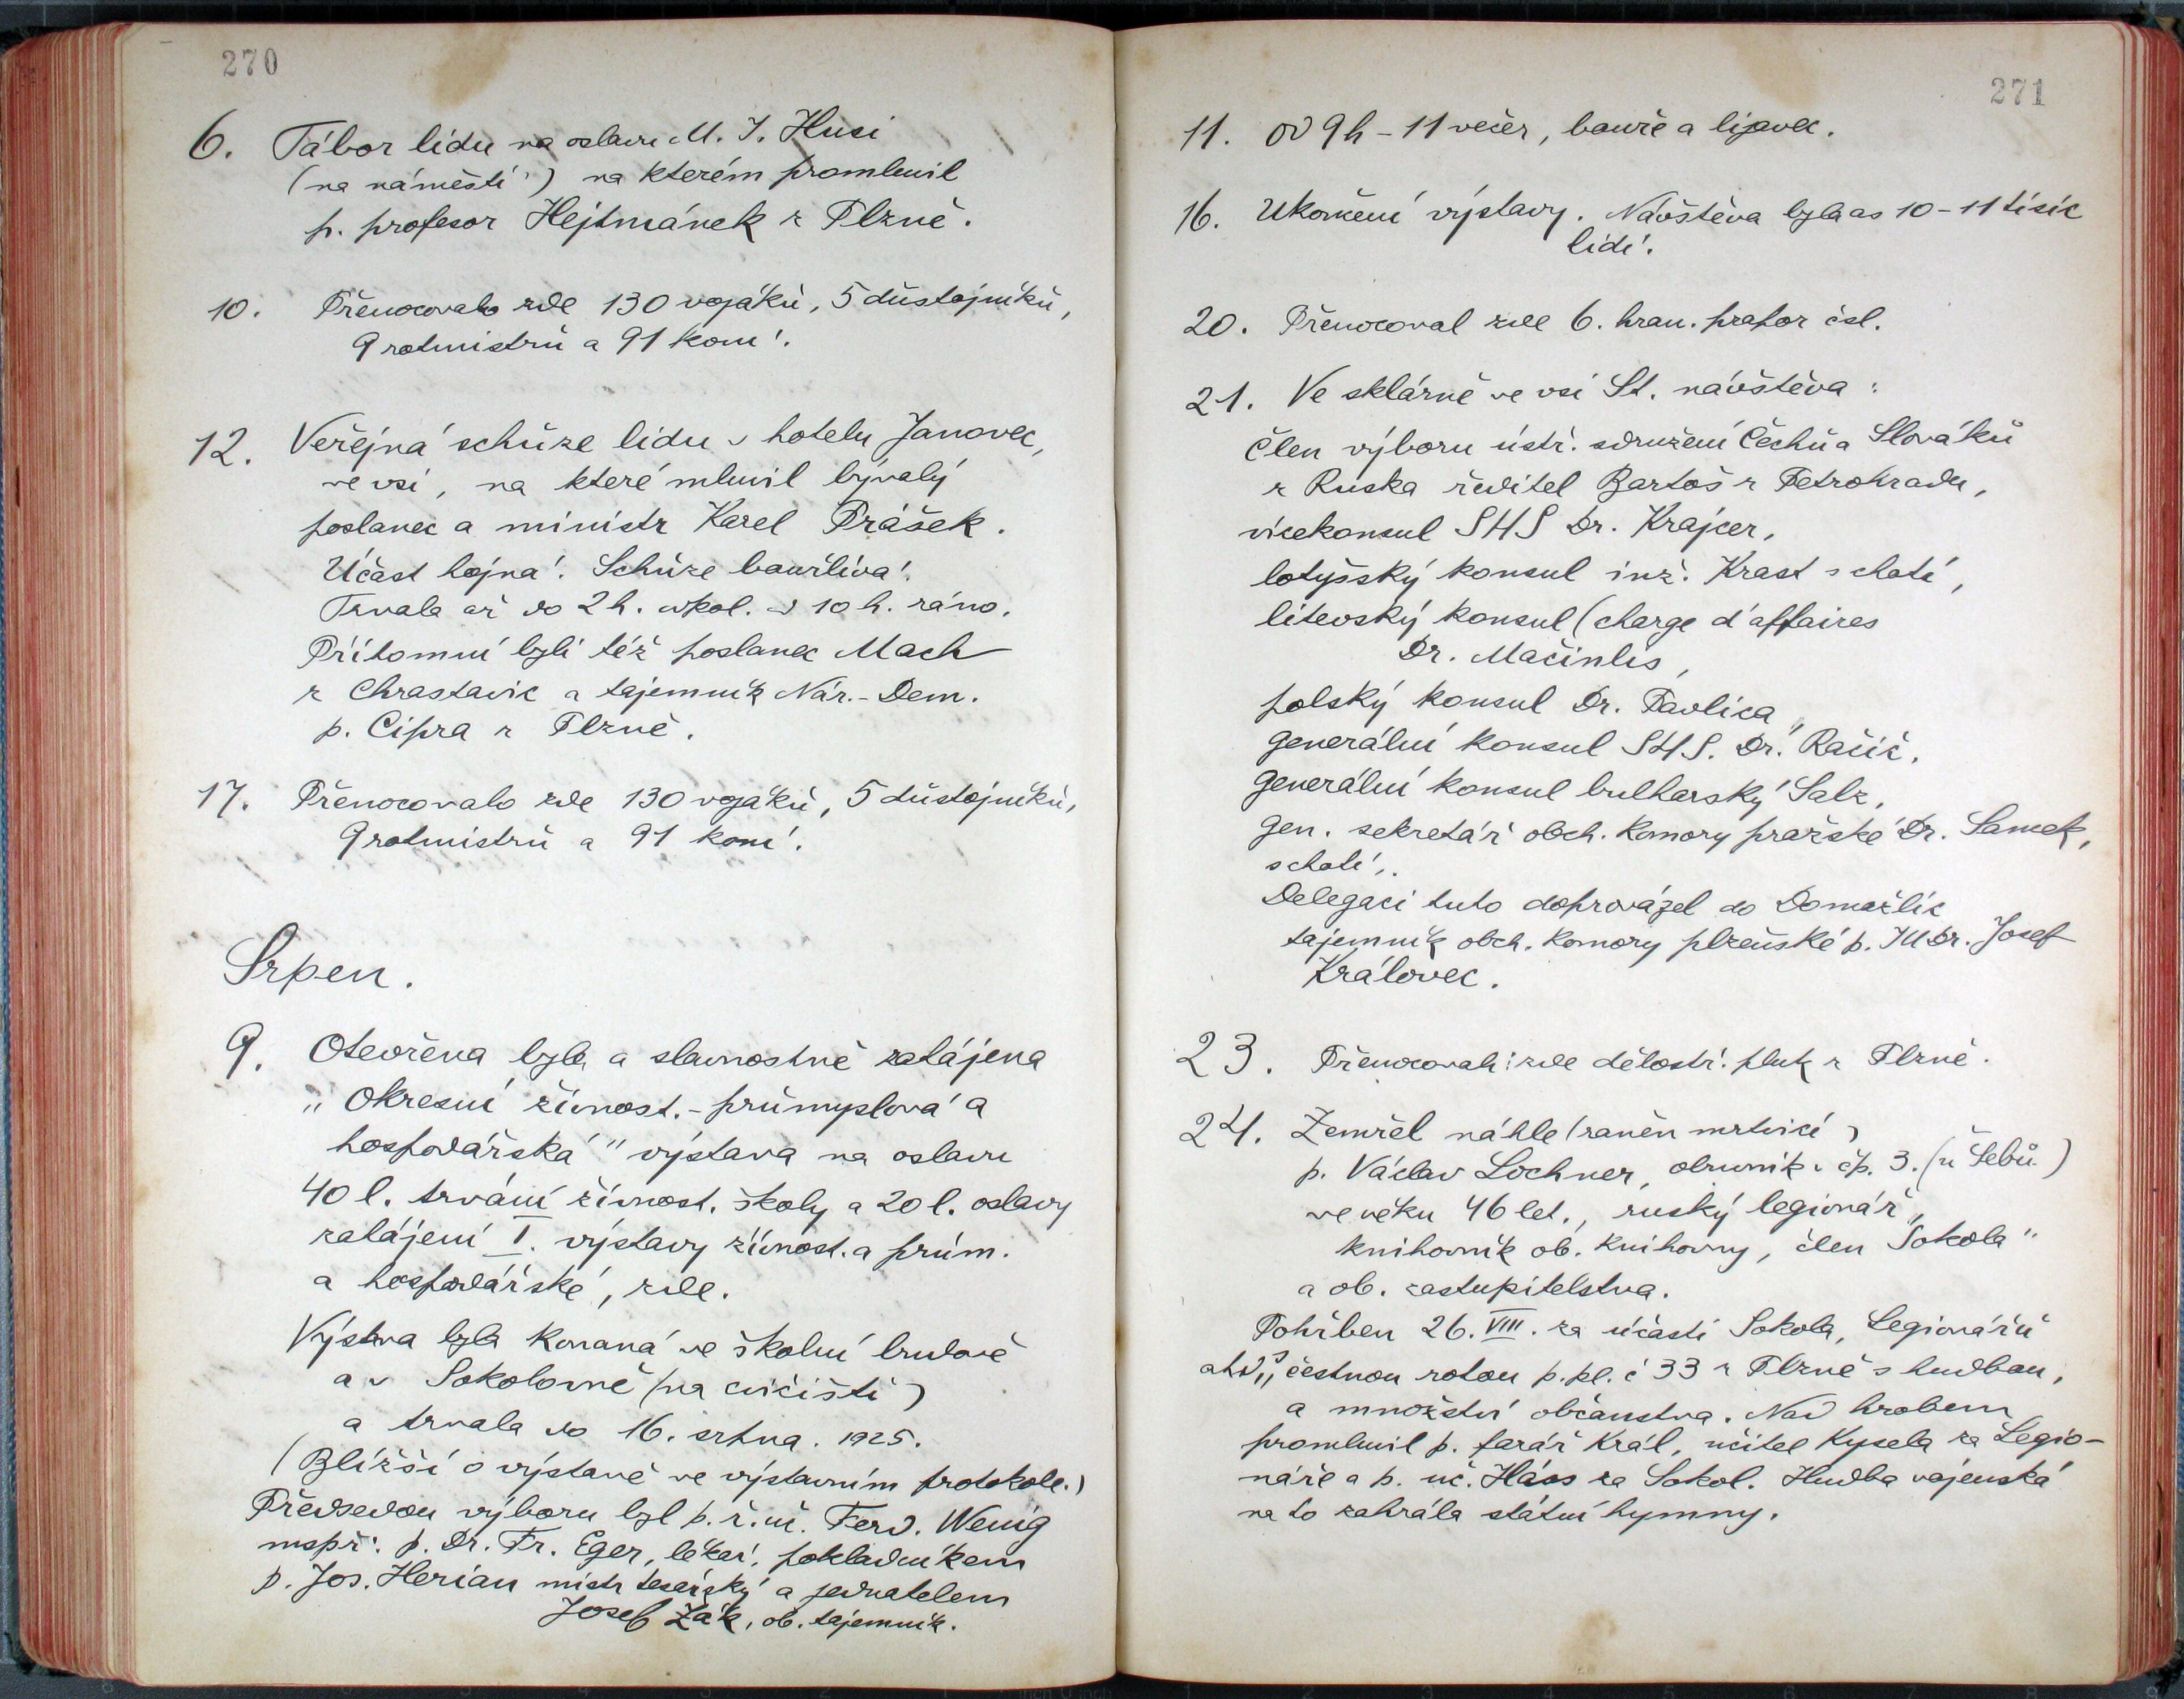 270
6. Tábor lidu na oslavu M. J. Husi
(na náměstí) na kterém promluvil
p. profesor Hejtmánek z Plzně.
10. Přenocovalo zde 130 vojáků, 5 důstojníků,
9 rotmistrů a 91 koní.
12. Veřejná schůze lidu v hotelu Janovec,
ve vsi, na které mluvil bývalý
poslanec a ministr Karel Prášek.
Účast hojná. Schůze bouřlivá.
Trvala až do 2 h. odpol. od 10 h. ráno.
Přítomni byli též poslanec Mach
z Chrastavic a tajemník Nár.-Dem.
p. Cipra z Plzně.
17. Přenocovalo zde 130 vojáků, 5 důstojníků,
9 rotmistrů a 91 koní.
Srpen.
9. Otevřena byla a slavnostně zahájena
„Okresní živnost.-průmyslová a
hospodářská" výstava na oslavu
40 l. trvání živnost. školy a 20 l. oslavy
zahájení I. výstavy živnost. a prům.
a hospodářské, zde.
Výstava byla konaná ve školní budově
a v Sokolovně (na cvičišti)
a trvala do 16. srpna. 1925.
(Bližší o výstavě ve výstavním protokole.)
Předsedou výboru byl p. ř. uč. Ferd. Wenig
mspř. p. Dr. Fr. Eger, lékař, pokladníkem
p. Jos. Herian mistr tesařský a jednatelem
Josef Žák, ob. tajemník.
271
11. od 9 h - 11 večer, bouře a lijavec.
16. Ukončení výstavy. Návštěva byla as 10-11 tisíc
lidí.
20. Přenocoval zde 6. hran. prapor čsl.
21. Ve sklárně ve vsi St. návštěva:
Člen výboru ústř. sdružení Čechů a Slováků
z Ruska ředitel Bartoš z Petrohradu,
vicekonsul SHS Dr. Krajcer,
lotyšský konsul inž. Krast s chotí,
litevský konsul (charge d'affaires
Dr. Mačiulis,
polský konsul Dr. Pavlica,
generální konsul SHS. Dr. Račić,
generální konsul bulharský Salz,
gen. sekretář obch. komory pražské Dr. Samek,
s chotí,.
Delegaci tuto doprovázel do Domažlic
tajemník obch. komory plzeňské p. JUDr. Josef
Královec.
23. Přenocoval zde dělostř. pluk z Plzně.
24. Zemřel náhle (raněn mrtvicí)
p. Václav Lochner, obuvník v čp. 3. (u Šebů)
ve věku 46 let., ruský legionář,
knihovník ob. knihovny, člen „Sokola"
a ob. zastupitelstva.
Pohřben 26. VIII. za účasti Sokola, Legionářů
atd., s čestnou rotou p. pl. č 33 z Plzně s hudbou,
a množství občanstva. Nad hrobem
promluvil p. farář Král, učitel Kysela za Legio-
náře a p. uč. Háos za Sokol. Hudba vojenská
na to zahrála státní hymny.